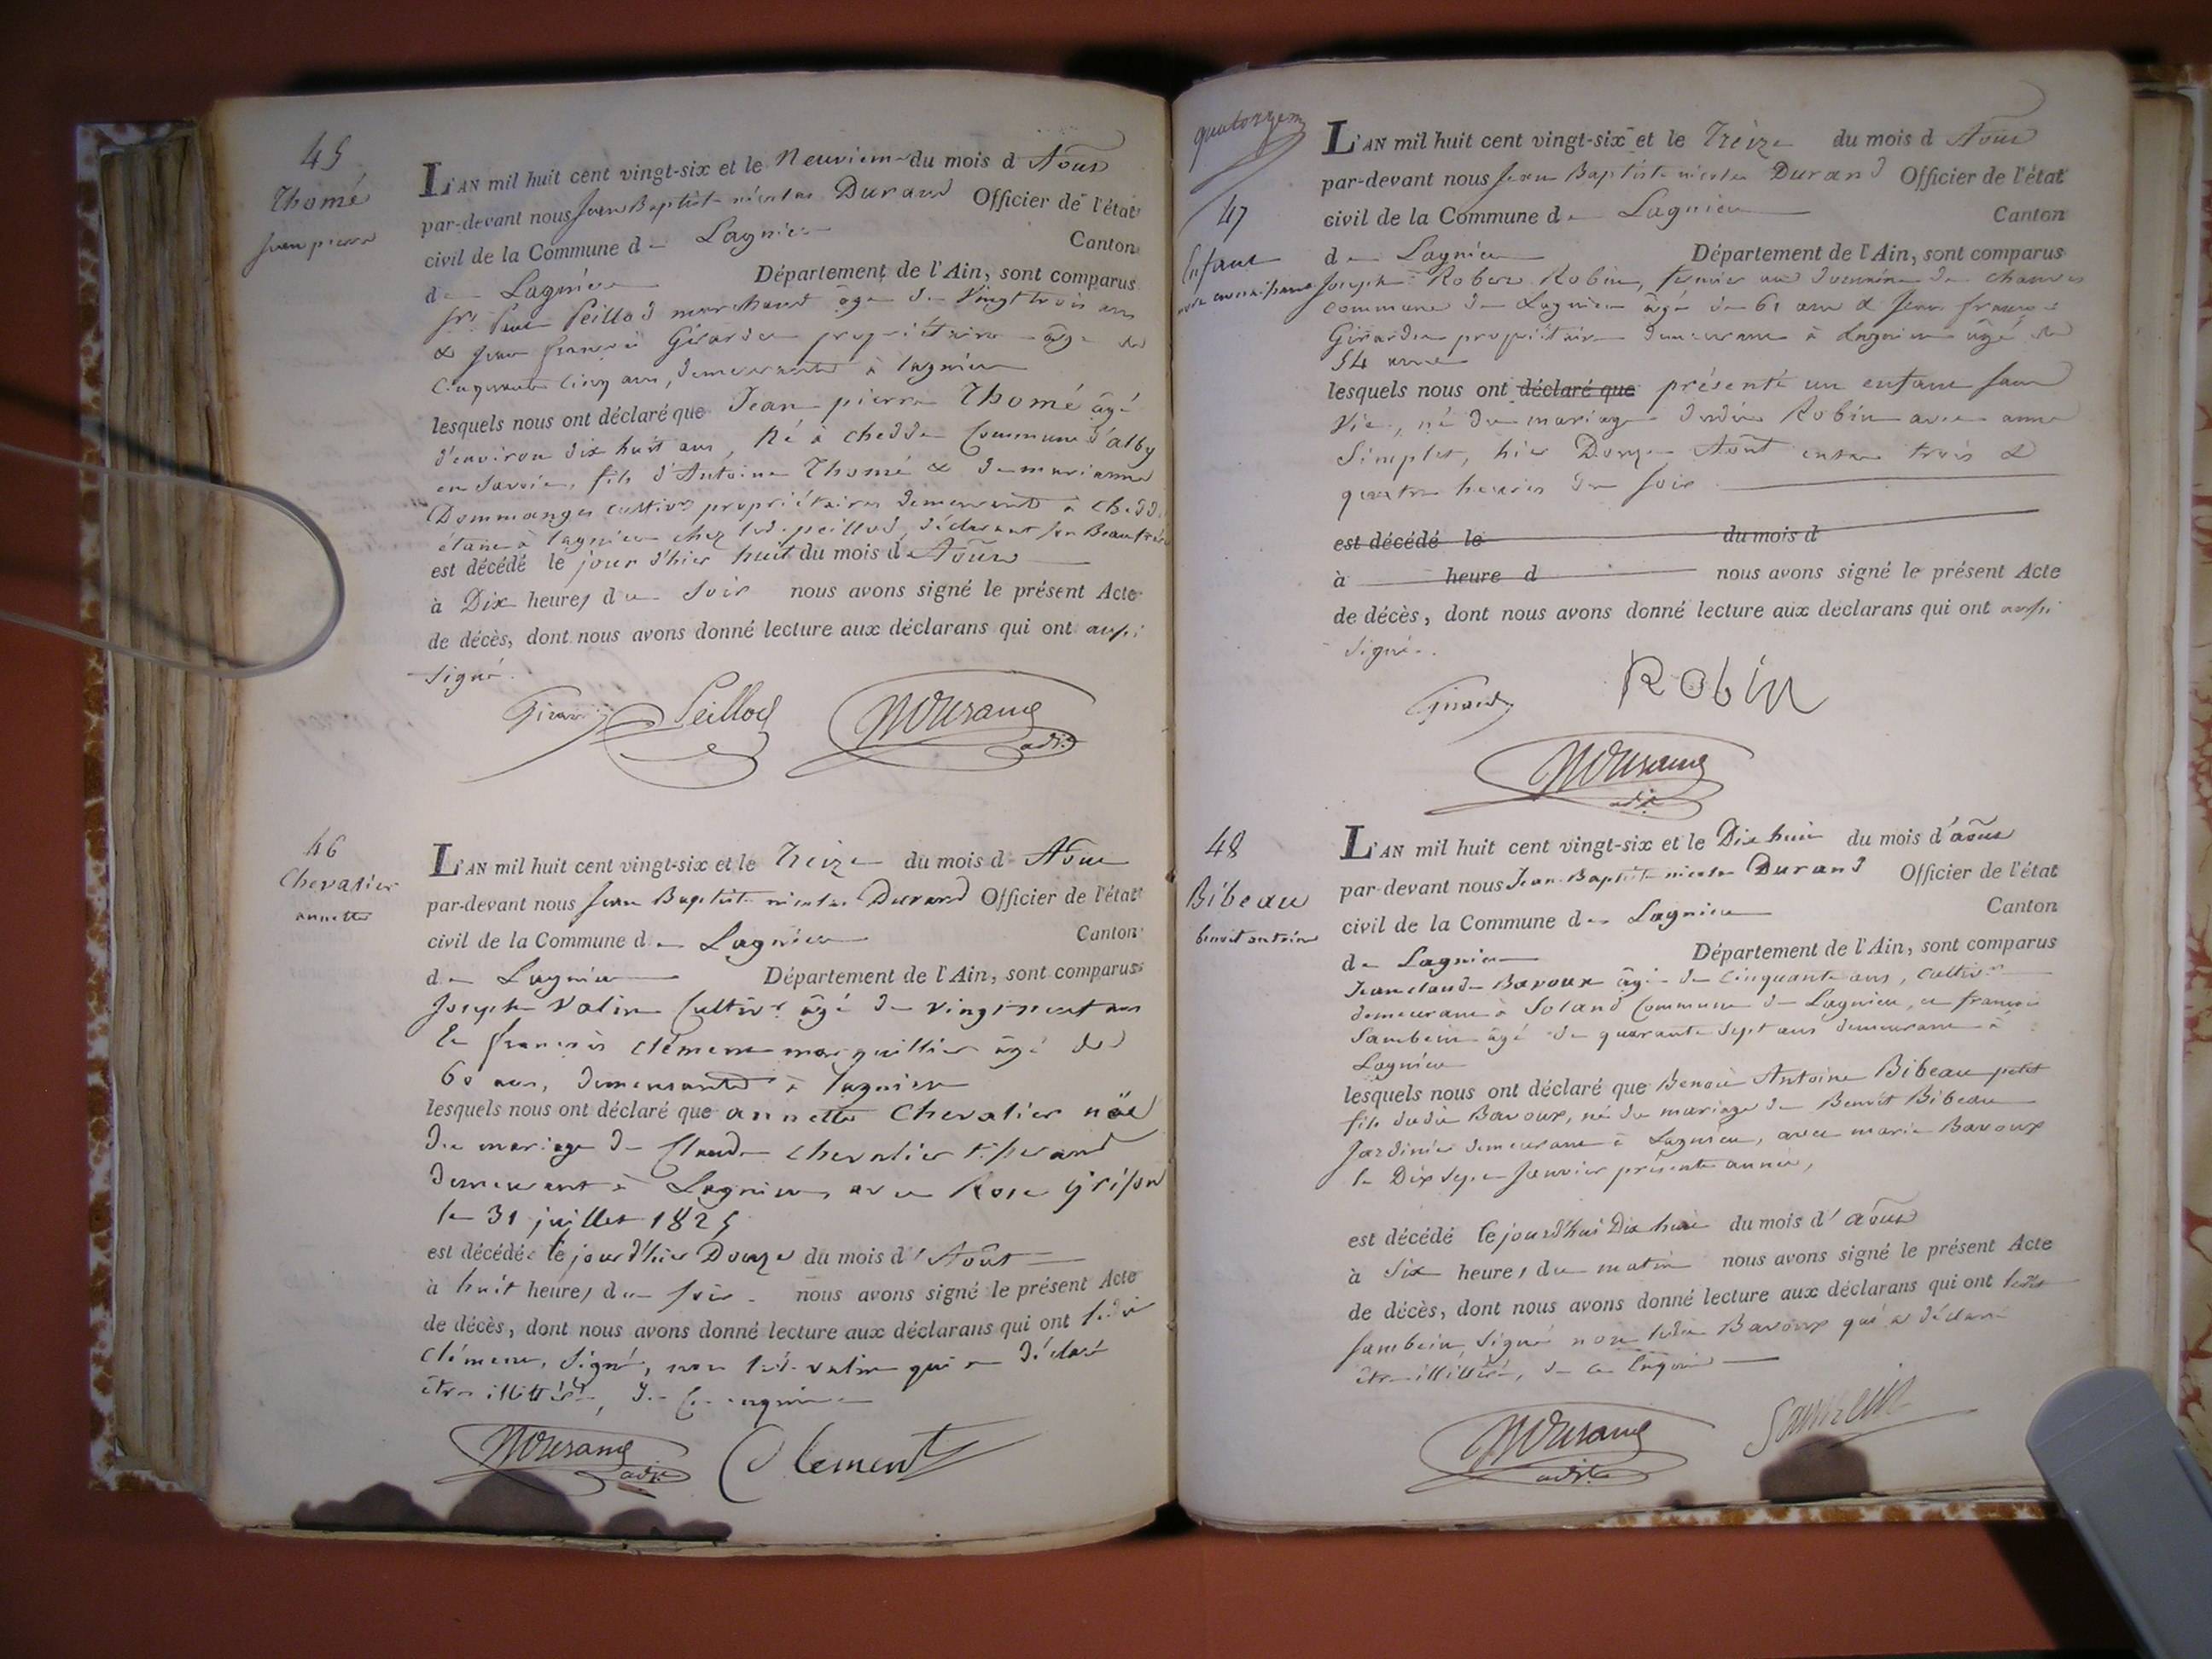 45
Thomé
Jean pierre
L'AN mil huit cent vingt-six et le Neuvieme du mois d'Août
par-devant nous Jean Baptiste nicolas Durand Officier de l'état
civil de la Commune de Lagnieu Canton
de Lagnieu Département de l'Ain, sont comparus
Sr. Peillod marchand âgé de Vingt trois ans
& Jean françois Girardin propriétaire âgé de
Cinquante Cinq ans, demeurants à lagnieu
lesquels nous ont déclaré que Jean pierre Thomé âgé
d'environ dix huit ans, Né à chedde Commune d'alby
en Savoie, fils d'Antoine Thomé & de marianne
Dommanget cultivrs propriétaires demeurants à chedde
étant à lagnieu chez led. peillod, déclarant son Beaufrère
est décédé le jour d'hier huit du mois d'Août
à Dix heures du Soir nous avons signé le présent Acte
de décès, dont nous avons donné lecture aux déclarans qui ont aussi
Signé.
Girardin Peillod NDurand adj.
46
Chevalier
annette
L'AN mil huit cent vingt-six et le Treize du mois d'Août
par-devant nous Jean Baptiste nicolas Durand Officier de l'état
civil de la Commune de Lagnieu Canton
de Lagnieu Département de l'Ain, sont comparus
Joseph Valin Cultivr. âgé de vingt neuf ans
Et françois clément marguillier âgé de
60 ans, demeurants à lagnieu
lesquels nous ont déclaré que annette Chevalier née
du mariage de Claude chevalier tisserand
demeurant à Lagnieu, avec Rose grison
le 31 juillet 1825
est décédée le jour d'hier Douze du mois d'Août
à huit heures du soir. nous avons signé le présent Acte
de décès, dont nous avons donné lecture aux déclarans qui ont ledit
clément, Signé, non led. valin qui a déclaré
être illittéré, de ce enquis
NDurand adj. Clement
quatorzieme
47
Enfant
L'AN mil huit cent vingt-six et le Treize du mois d'Août
par-devant nous Jean Baptiste nicolas Durand Officier de l'état
civil de la Commune de Lagnieu Canton
de Lagnieu Département de l'Ain, sont comparus
Joseph Robert Robin, fermier au domaine de
commune de Lagnieu âgé de 61 ans & Jean françois
Girardin propriétaire demeurant à Lagnieu âgé de
54 ans
lesquels nous ont déclaré que présenté un enfant sans
Vie, né du mariage dudit Robin avec anne
Simplet, hier Douze Août entre trois &
quatre heures du soir
est décédé le du mois d
à heure d nous avons signé le présent Acte
de décès, dont nous avons donné lecture aux déclarans qui ont aussi
Signé.
Girardin Robin
NDurand adj.
48
Bibeau
benoit antoine
L'AN mil huit cent vingt-six et le Dix huit du mois d'août
par-devant nous Jean Baptiste nicolas Durand Officier de l'état
civil de la Commune de Lagnieu Canton
de Lagnieu Département de l'Ain, sont comparus
Jean claude Bavoux âgé de Cinquante ans, cultivr
demeurant à Soland Commune de Lagnieu, et françois
Sambein âgé de quarante Sept ans demeurant à
Lagnieu
lesquels nous ont déclaré que Benoit Antoine Bibeau petit
fils dudit Bavoux, né du mariage de Benoit Bibeau
Jardinier demeurant à Lagnieu, avec marie Bavoux
le Dix Sept Janvier présente année,
est décédé le jourd'hui Dix huit du mois d'août
à Six heures du matin nous avons signé le présent Acte
de décès, dont nous avons donné lecture aux déclarans qui ont ledit
Sambein, Signé non ledit Bavoux qui a déclaré
être illittéré, de ce Enquis
NDurand adj. Sambein